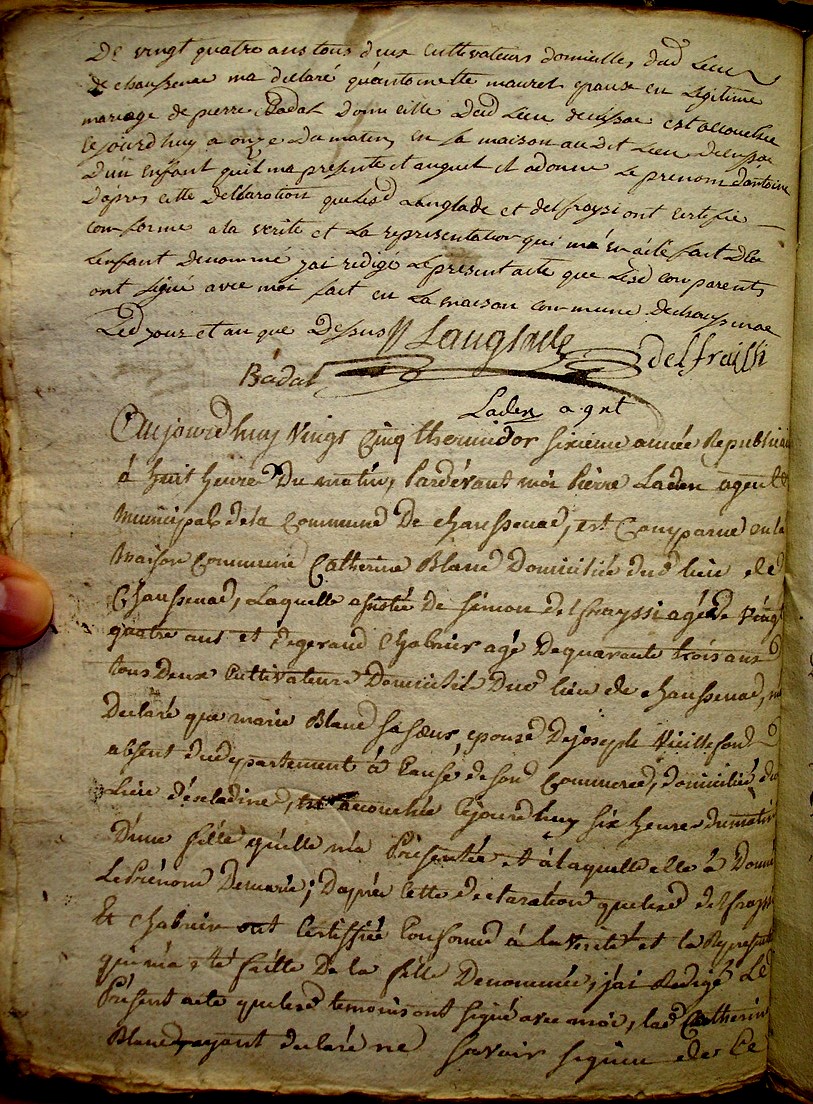 De vingt quatre ans tous deux cultivateurs domicilies dud Lieu
de chaussenac ma declaré qu'antoinette mauret epouse en Legitime
mariage de pierre Badal Domicilie Dud Lieu est accouchee
cejourdhuy a onze Du matin en sa maison au dit Lieu
D'un enfant quil ma presente et auquel il adonne Le prenom d'antoine
D'apres cette declaration que lesd Langlade et delfraysi ont certifie
conforme a la verite et La representation qui ma été fait De
Lenfant denomme jai rédigé Le present acte que Lesd comparents
ont signe avec moi fait en La maison commune de chaussenac
Led jour et an que Dessus Langlade delfraissi
Badal
Laden agnt
Aujourdhuy vingt cinq thermidor sixieme année Republi
á huit heure Du matin, Pardévant moi Pierre Laden agent
Municipal de la Commune De chaussenac, est Comparue en la
Maison Commune Catherine Blanc Domiciliée dud lieu de
Chaussenac, Laquelle assistée De Simon delfrayssi agé de vingt
quatre ans et de geraud Chabrier agé De quarante trois ans
tous Deux Cultivateurs Domiciliés Dud lieu de chaussenac, m
Declaré que marie Blanc sa soeur, epouse De joseph Vieillefond
absent du departement á Cause de son Commerce, domiciliée du
Lieu d'escladine, est accouchée cejourdhuy six heures du matin
D'une fille qu'elle m'a Présentée et á laquelle elle á Donné
Le Prénom De marie; D'aprés Cette declaration que lesd delfrayssi
Et Chabrier ont Certiffiée Conforme á la verité et la Représent
qui m'a été faitte De la fille Denommée, j'ai Redigé Le
Présent acte que lesd temoins ont signé avec moi, lad Catherine
Blanc, ayant declaré ne savoir signer de ce